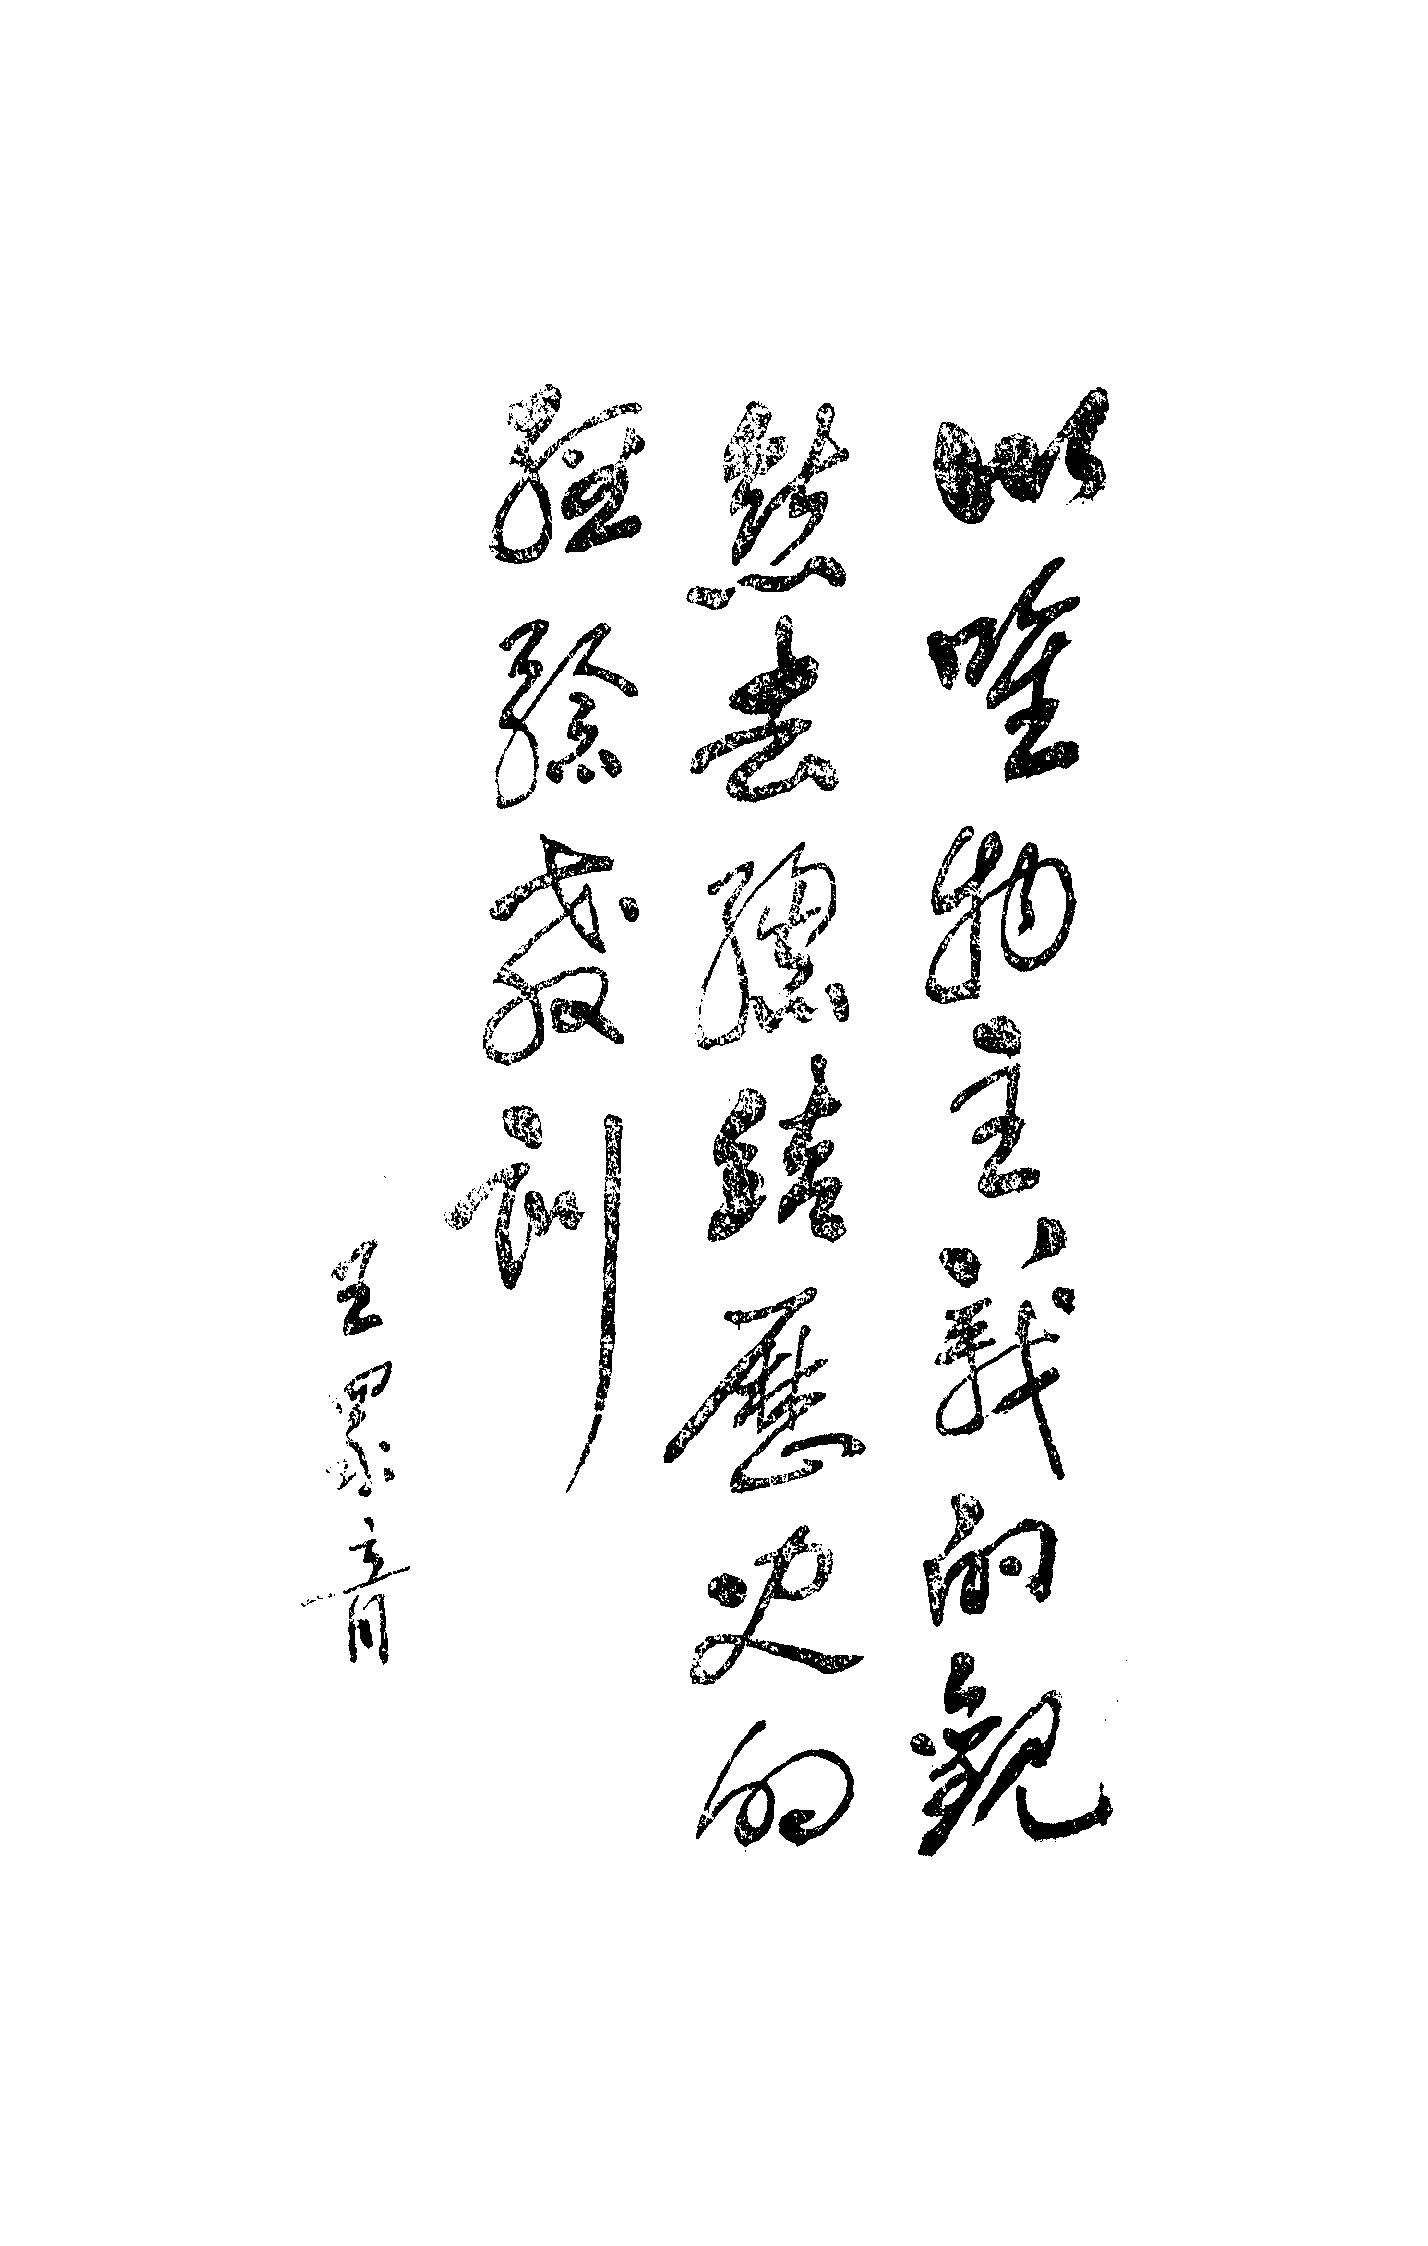 以唯物主義的觀
點去總結歷史的
經驗教訓
王累音